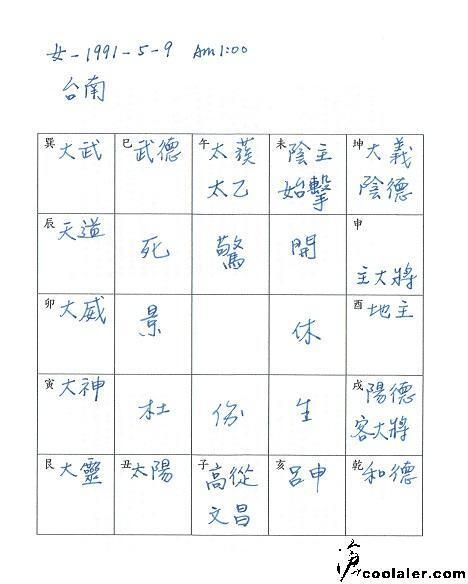 女-1991-5-9 Am1:00
台南
巽 大武 巳 武德 午 太蔟 未 陰主 坤 大義
太乙 始擊 陰德
辰 天道 申
死 驚 開
主大將
卯 大威 酉 地主
景 休
寅 大神 戌 陽德
杜 伤 生 客大將
艮 大靈 丑 太陽 子 高從 亥 呂申 乾 和德
文昌
滄
coolaler.com